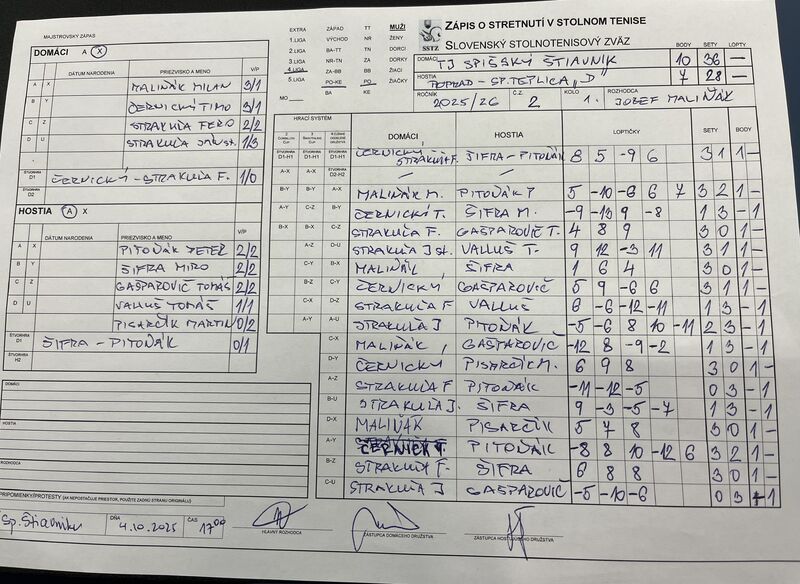 MAJSTROVSKÝ ZÁPAS
DOMÁCI A X
DÁTUM NARODENIA PRIEZVISKO A MENO V/P
A X MALIŇÁK MILAN 3/1
B Y ČERNICKÝ TIMO 3/1
C Z STRAKUĽA FERO 2/2
D U STRAKUĽA JÁN st. 1/3
ŠTVORHRA D1 ČERNICKÝ - STRAKUĽA F. 1/0
ŠTVORHRA D2
HOSTIA A X
DÁTUM NARODENIA PRIEZVISKO A MENO V/P
A X PITOŇÁK PETER 2/2
B Y ŠIFRA MIRO 2/2
C Z GAŠPAROVIČ TOMÁŠ 2/2
D U VALLUŠ TOMÁŠ 1/1
PISARČIK MARTIN 0/2
ŠTVORHRA D1 ŠIFRA - PITOŇÁK 0/1
ŠTVORHRA H2
DOMÁCI
HOSTIA
ROZHODCA
PRIPOMIENKY/PROTESTY (AK NEPOSTAČUJE PRIESTOR, POUŽITE ZADNÚ STRANU ORIGINÁLU)
Sp. Štiavnik DŇA 4.10.2025 ČAS 17 00
HLAVNÝ ROZHODCA
ZÁSTUPCA DOMÁCEHO DRUŽSTVA
ZÁSTUPCA HOSŤUJÚCEHO DRUŽSTVA
EXTRA ZÁPAD TT MUŽI
1.LIGA VÝCHOD NR ŽENY
2.LIGA BA-TT TN DORCI
3.LIGA NR-TN ZA DORKY
4.LIGA ZA-BB BB ŽIACI
5.LIGA PO-KE PO ŽIAČKY
MO BA KE
SSTZ
ZÁPIS O STRETNUTÍ V STOLNOM TENISE
SLOVENSKÝ STOLNOTENISOVÝ ZVÄZ
BODY SETY LOPTY
DOMÁCI TJ SPIŠSKÝ ŠTIAVNIK 10 36 —
HOSTIA POPRAD - SP. TEPLICA „D" 7 28 —
ROČNÍK 2025/26 Č.Z. 2 KOLO 1. ROZHODCA JOZEF MALIŇÁK
HRACÍ SYSTÉM
DOMÁCI HOSTIA LOPTIČKY SETY BODY
ŠTVORHRA D1-H1 ŠTVORHRA D1-H1 ŠTVORHRA D1-H1 ČERNICKÝ STRAKUĽA F. ŠIFRA - PITOŇÁK 8 5 -9 6 3 1 1 -
A-X A-X ŠTVORHRA D2-H2 — —
B-Y B-Y A-X MALIŇÁK M. PITOŇÁK P 5 -10 -6 6 7 3 2 1 -
A-Y C-Z B-Y ČERNICKÝ T. ŠIFRA M. -9 -13 9 -8 1 3 - 1
B-X B-X C-Z STRAKUĽA F. GAŠPAROVIČ T. 4 8 9 3 0 1 -
A-Z D-U STRAKUĽA J st. VALLUŠ T. 9 12 -3 11 3 1 1 -
C-Y B-X MALIŇÁK ŠIFRA 1 6 4 3 0 1 -
B-Z C-Y ČERNICKÝ GAŠPAROVIČ 5 9 -6 6 3 1 1 -
C-X D-Z STRAKUĽA F VALLUŠ 6 -6 -12 -11 1 3 - 1
A-Y A-U STRAKUĽA J PITOŇÁK -5 -6 8 10 -11 2 3 - 1
C-X MALIŇÁK GAŠPAROVIČ -12 8 -9 -2 1 3 - 1
D-Y ČERNICKÝ PISARČIK M. 6 9 8 3 0 1 -
A-Z STRAKUĽA F PITOŇÁK -11 -12 -5 0 3 - 1
B-U STRAKUĽA J. ŠIFRA 9 -3 -5 -7 1 3 - 1
D-X MALIŇÁK PISARČIK 5 7 8 3 0 1 -
A-Y ČERNICK T. PITOŇÁK -8 8 10 -12 6 3 2 1 -
B-Z STRAKUĽA F. ŠIFRA 6 8 8 3 0 1 -
C-U STRAKUĽA J GAŠPAROVIČ -5 -10 -6 0 3 - 1